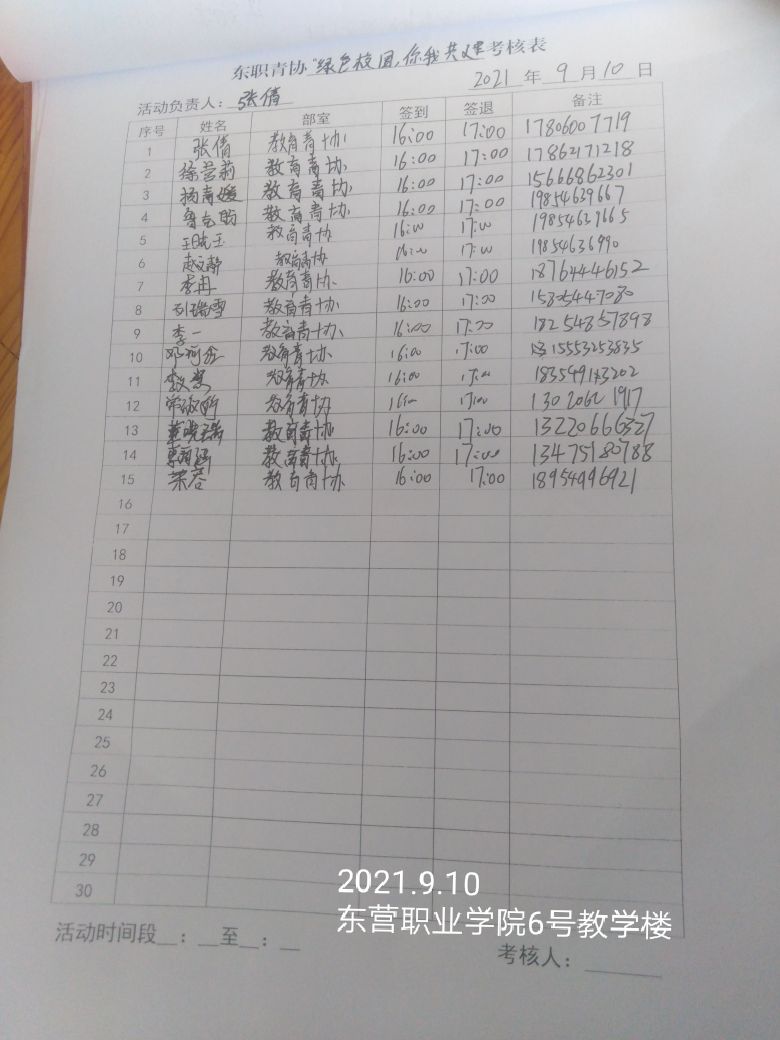 东职青协"绿色校园,你我共建考核表
2021 年 9 月 10 日
活动负责人: 张倩
序号 姓名 部室 签到 签退 备注
1 张倩 教育青协 16:00 17:00 17806007719
2 徐营莉 教育青协 16:00 17:00 17862171218
3 杨青媛 教育青协 16:00 17:00 15666862301
4 教育青协 16:00 17:00 19854639667
5 王晓玉 教育青协 16:00 17:00 19854639665
6 赵文静 教育青协 16:00 17:00 19854636990
7 李冉 教育青协 16:00 17:00 18764446152
8 刘瑞雪 教育青协 16:00 17:00 15805447080
9 李一 教育青协 16:00 17:00 18254857898
10 教育青协 16:00 17:00 15553253835
11 教育青协 16:00 17:00
12 教育青协 1600 17:00
13 教育青协 16:00 17:00 13220666327
14 教育青协 16:00 17:00 13475180788
15 荣蓉 教育青协 16:00 17:00 18954996921
16
17
18
19
20
21
22
23
24
25
26
27
28
29
30
活动时间段__:__至__:__
考核人:
2021.9.10
东营职业学院6号教学楼